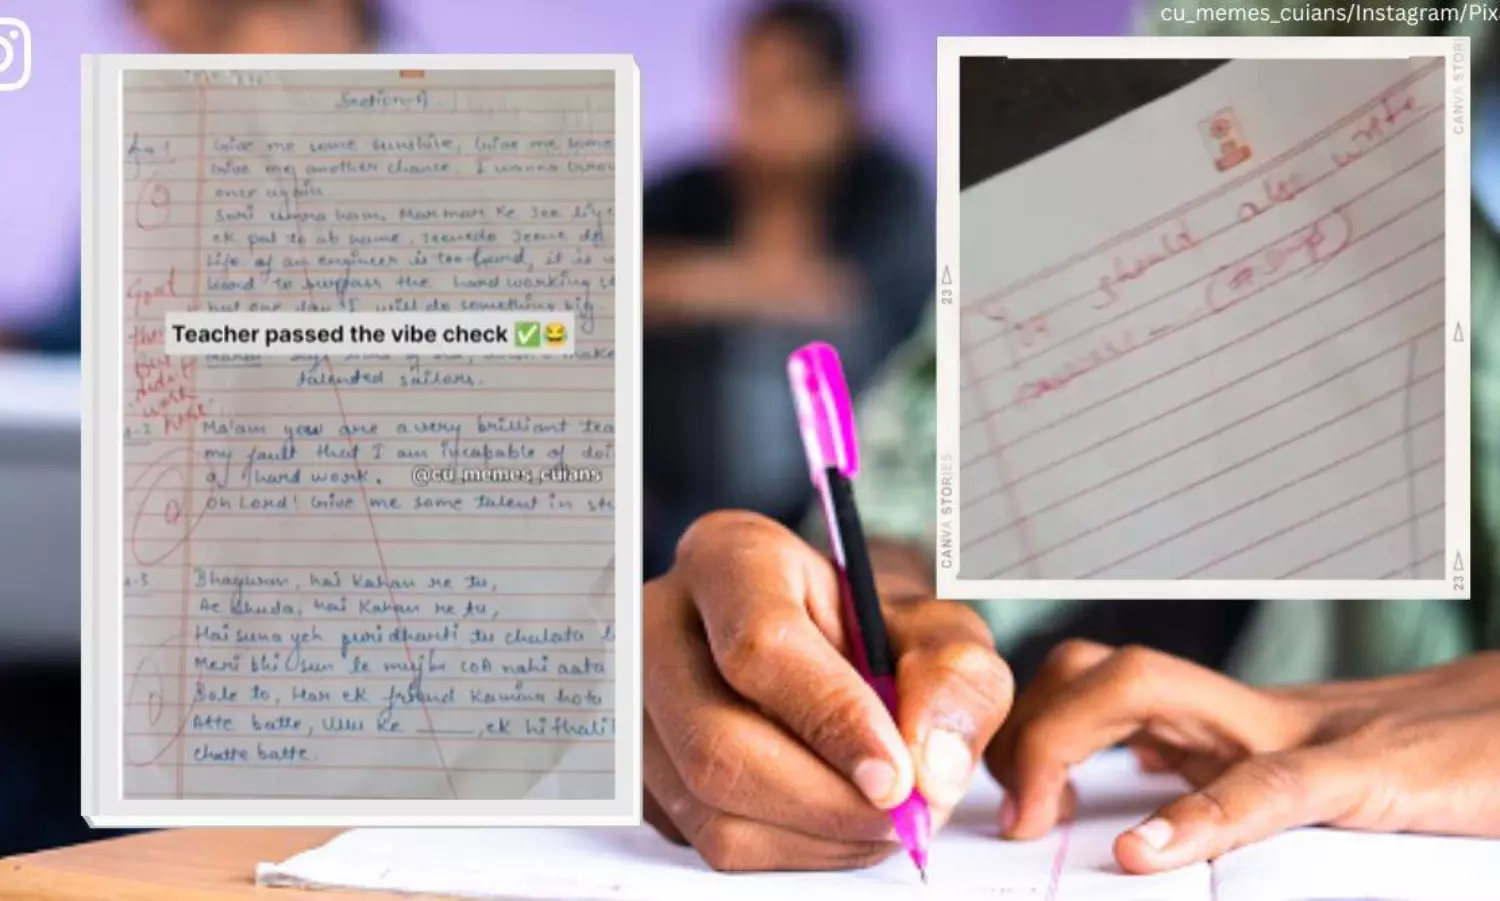 cu_memes_cuians/Instagram/Pix
Section-A
Give me some sunshine, Give me some
Give me another chance, I wanna Grow
once again.
Sari umra ham, Mar mar ke jee liye
ek pal to ab hame, jeenedo jeene do
Life of an engineer is too hard, it is
hard to surpass the hard working
but one day I will do something big
Teacher passed the vibe check ✅😂
make
talented sailors.
Ma'am you are a very brilliant tea
my fault that I am incapable of doi
of hard work.
@cu_memes_cuians
oh Lord! Give me some talent in stu
Bhagwan, hai Kahan re tu,
Ae Khuda, hai Kahan re tu,
Hai suna yeh
dharti tu chalata
Meri bhi sun le mujhe COA nahi aata
Bole to, Har ek friend Kamina hota
Atte batte, Ullu ke ____, ek hi thali
chatte batte.
0
But
didn't
work
here
0
0
should also write
CANVA STORI
23
CANVA STORIES
23